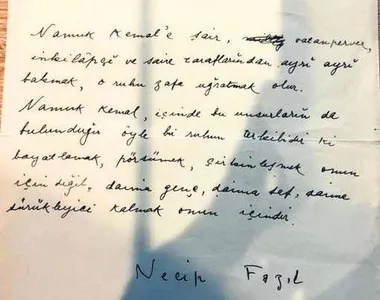 Namuk Kemal'e şair, vatanperver,
inkilâpçı ve saire taraflarından ayrı ayrı
bakmak, o ruhu zaafa uğratmak olur.
Namuk Kemal, içinde bu unsurların da
bulunduğu öyle bir ruhun terkibidir ki
bayatlamak, pörsümek, çirkinleşmek onun
için değil, daima genç, daima saf, daima
sürükleyici kalmak onun içindir.
Necip Fazıl